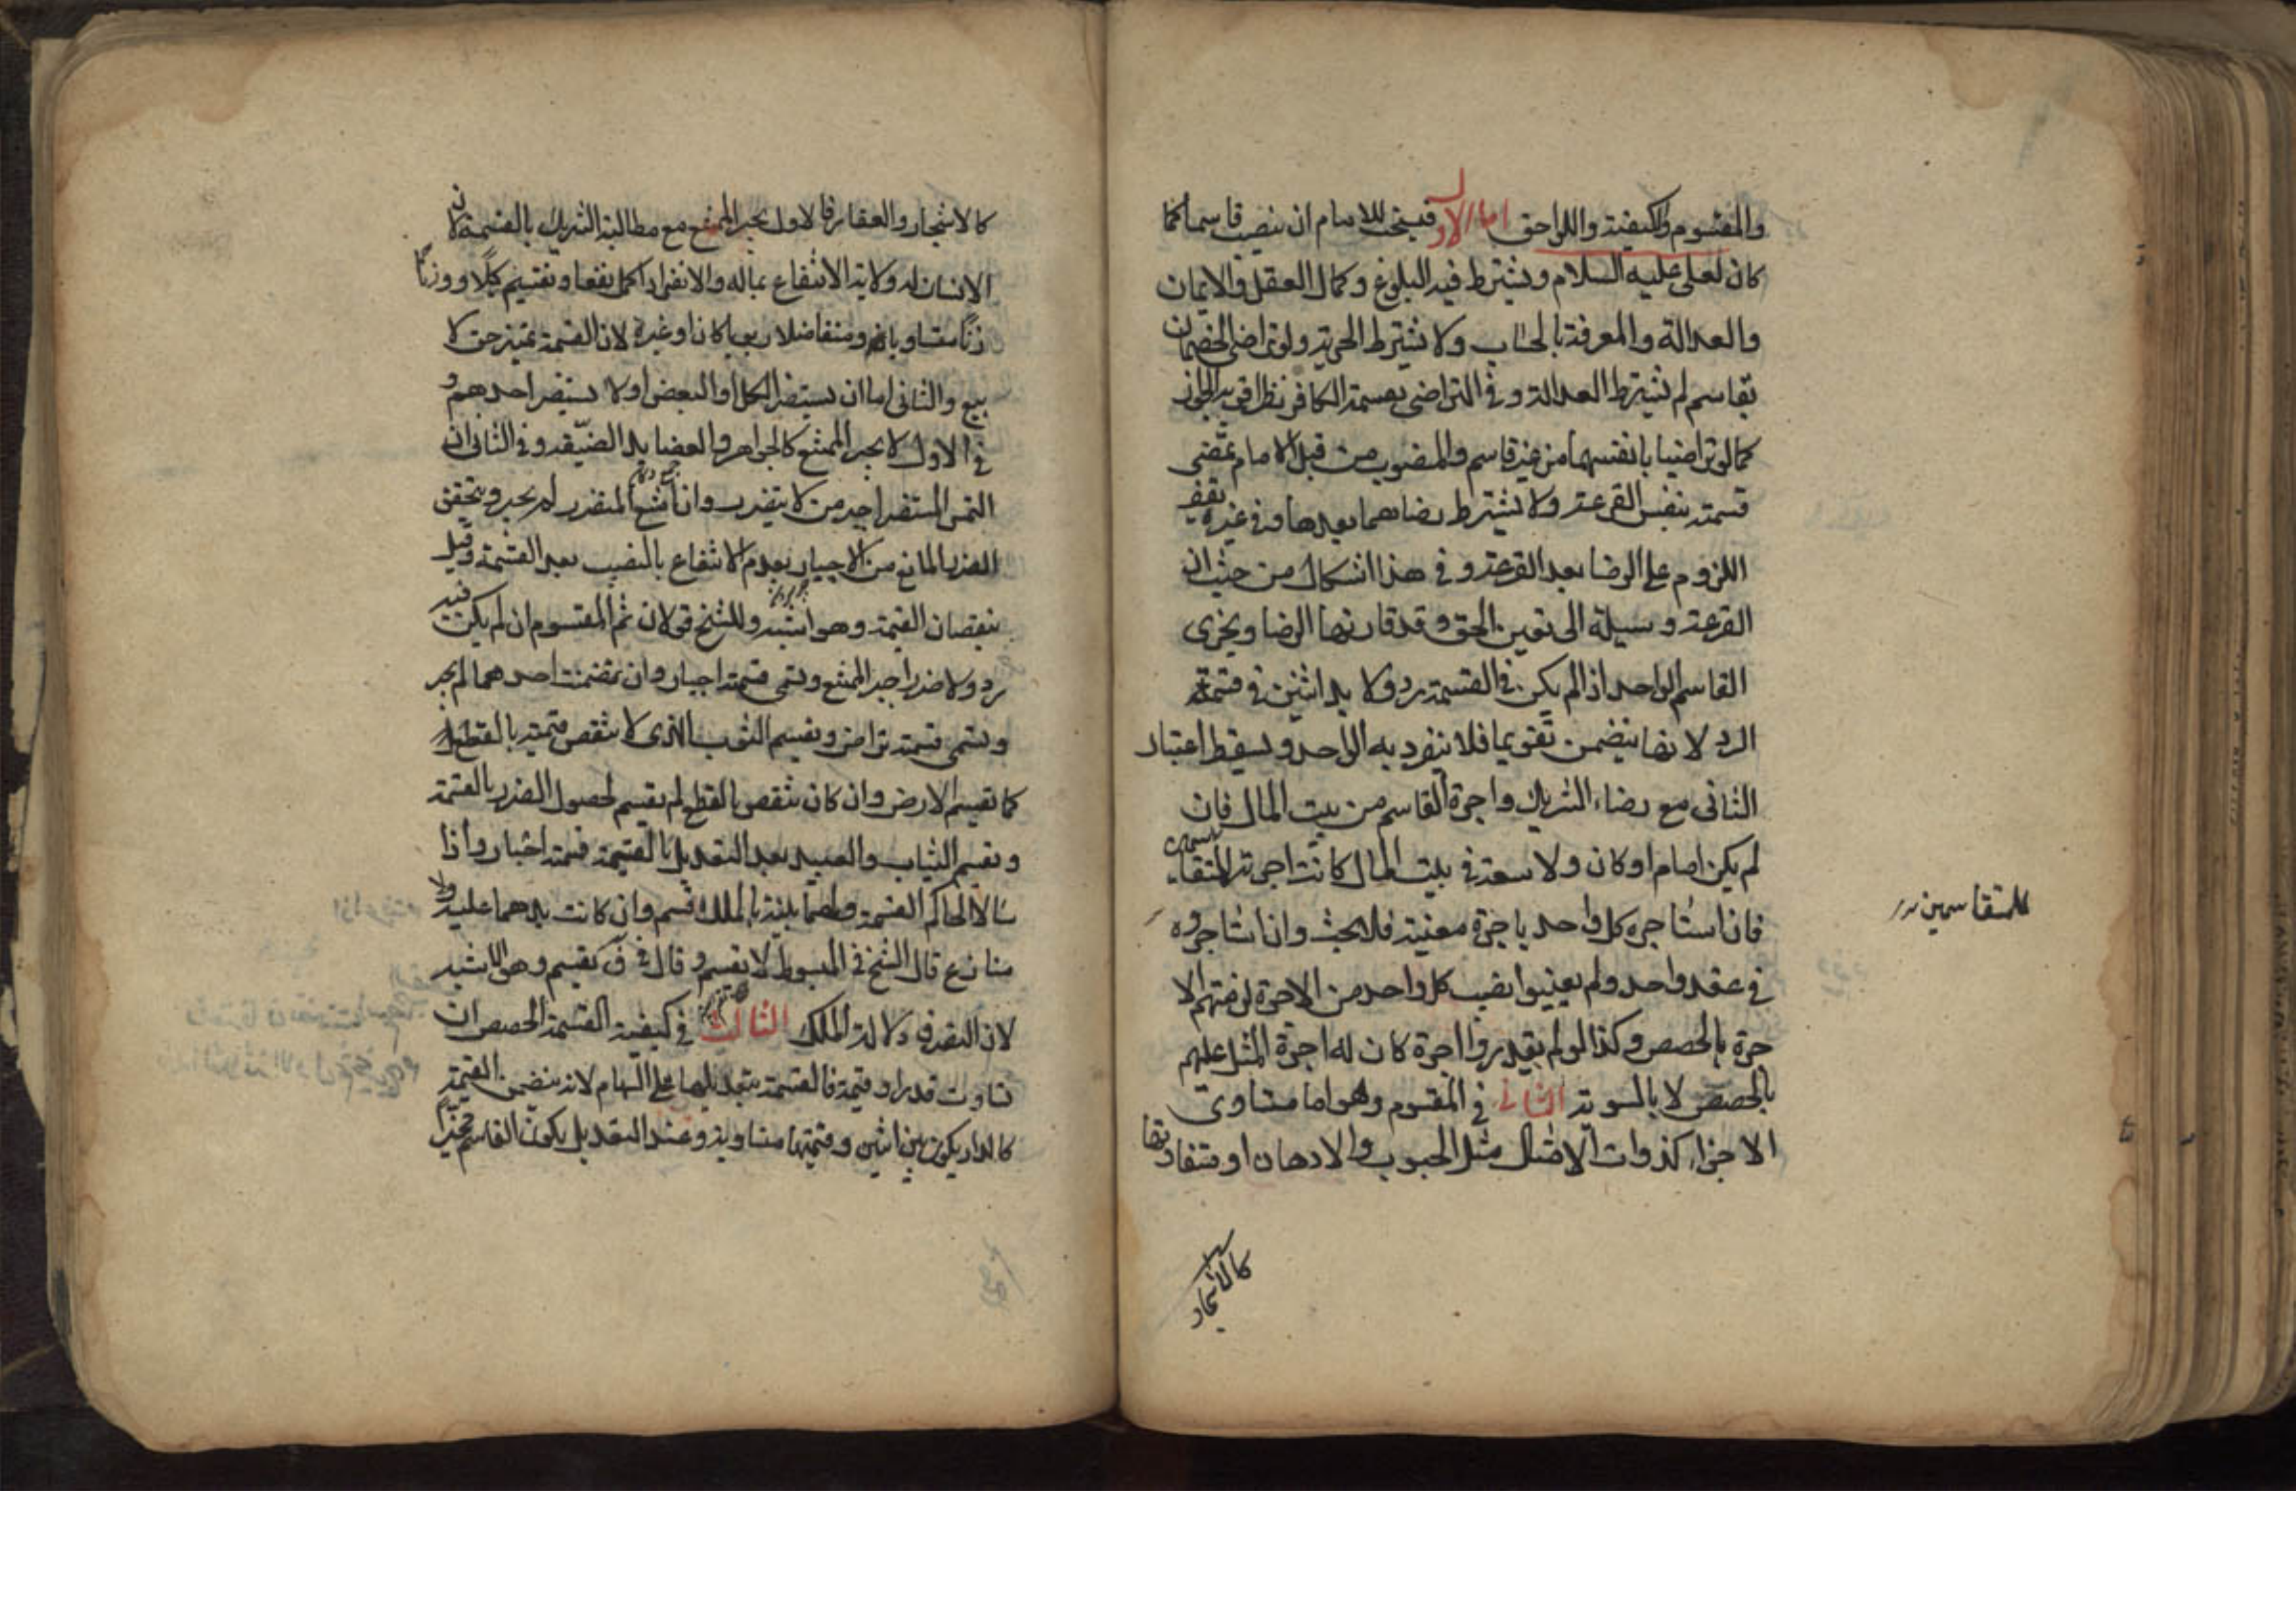 والمقسوم والكيفية واللواحق اما الاول فيستحب للامام ان ينصب قاسما كما
كان لعلى عليه السلام ويشترط فيه البلوغ وكمال العقل والايمان
والعدالة والمعرفة بالحساب ولا يشترط الحرية ولو تراضى الخصمان
بقاسم لم يشترط العدالة وفى التراضى بقسمة الكافر نظر اقربه الجواز
كما لو تراضيا بانفسهما من غير قاسم والمنصوب من قبل الامام تمضى
قسمته بنفس القرعة ولا يشترط رضاهما بعدها وفى غيره يقف
اللزوم على الرضا بعد القرعة وفى هذا اشكال من حيث ان
القرعة وسيلة الى تعيين الحق وقد قارنها الرضا ويجزى
القاسم الواحد اذا لم يكن فى القسمة رد ولا بد اثنين فى قسمة
الرد لانها يتضمن تقويما فلا ينفرد به الواحد ويسقط اعتبار
الثانى مع رضاء الشريك واجرة القاسم من بيت المال فان
لم يكن امام او كان ولا سعة فى بيت المال كانت اجرته للمتقاسمين
فان استاجره كل واحد باجرة معينة فلا بحث وان استاجروه
فى عقد واحد ولم يعينوا نصيب كل واحد من الاجرة لزمتهم الا
جرة بالحصص وكذا لو لم يقدروا اجرة كان له اجرة المثل عليهم
بالحصص لا بالسوية الثانى فى المقسوم وهو اما متساوى
الاجزاء كذوات الامثال مثل الحبوب والادهان او متفاوتها
للمتقاسمين
كالاشجار
كالاشجار والعقار فالاول يجبر الممتنع مع مطالبة الشريك بالقسمة لان
الانسان له ولاية الانتفاع بماله والانفراد اكمل نفعا ويقسم كيلا ووزنا
متساويا ومتفاضلا ربويا كان او غيره لان القسمة تميز حق لا
بيع والثانى اما ان يستضر الكل او البعض او لا يستضر احدهم و
فى الاول لا يجبر الممتنع كالجواهر والعضايد الضيقة وفى الثانى ان
التمس المستضر اجبر من لا يتضرر وان امتنع المتضرر لم يجبر ويتحقق
الضرر المانع من الاجبار بعدم الانتفاع بالنصيب بعد القسمة وقيل
بنقصان القيمة وهو اشبه وللشيخ قولان ثم المقسوم ان لم يكن فيه
رد ولا ضرر اجبر الممتنع ويسمى قسمة اجبار وان تضمنت احدهما لم يجبر
ويسمى قسمة تراض ويقسم الثوب الذى لا ينقص قيمته بالقطع
كما تقسم الارض وان كان ينقص بالقطع لم يقسم لحصول الضرر بالقسمة
ويقسم الثياب والعبيد بعد التعديل بالقيمة قسمة اجبار واذا
سالا الحاكم القسمة ولهما بينة بالملك قسم وان كانت يدهما عليه ولا
منازع قال الشيخ فى المبسوط لا يقسم وقال فى ف يقسم وهو الاشبه
لان التصرف دلالة الملك الثالث فى كيفية القسمة الحصص ان
تساوت قدرا وقيمة فالقسمة بتعديلها على السهام لانه يتضمن القيمة
كالدار يكون بين اثنين وقيمتها متساوية وعند التعديل يكون القاسم مخيرا